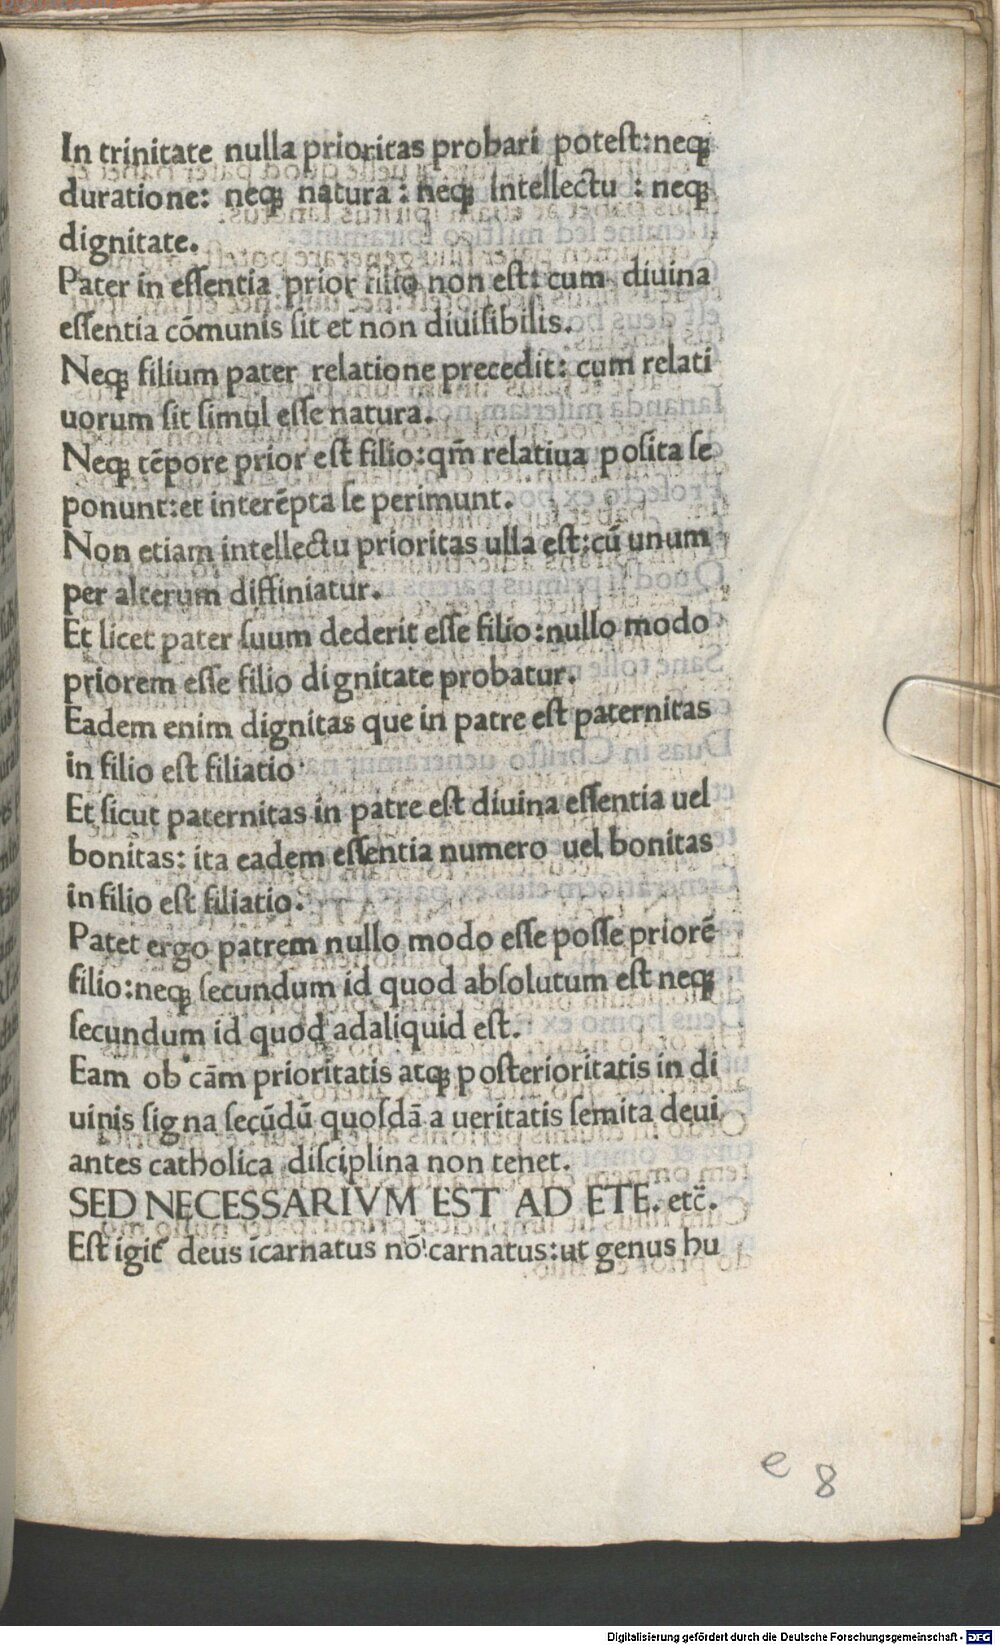 In trinitate nulla prioritas probari potest:neqꝫ
duratione: neqꝫ natura : neqꝫ intellectu : neqꝫ
dignitate.
Pater in eſſentia prior filio non est: cum diuina
eſſentia cōmunis ſit et non diuiſibilis.
Neqꝫ filium pater relatione precedit: cum relati
uorum ſit ſimul eſſe natura.
Neqꝫ tēpore prior eſt filio:qm̄ relatiua poſita ſe
ponunt:et interēpta ſe perimunt.
Non etiam intellectu prioritas ulla eſt:cū unum
per alterum diffiniatur.
Et licet pater ſuum dederit eſſe filio:nullo modo
priorem eſſe filio dignitate probatur.
Eadem enim dignitas que in patre eſt paternitas
in filio eſt filiatio·
Et ſicut paternitas in patre eſt diuina eſſentia uel
bonitas: ita eadem eſſentia numero uel bonitas
in filio eſt filiatio.
Patet ergo patrem nullo modo eſſe poſſe priorē
filio:neqꝫ ſecundum id quod abſolutum eſt neqꝫ
ſecundum id quod adaliquid eſt.
Eam ob cām prioritatis atqꝫ poſterioritatis in di
uinis ſigna ſecūdū quoſdā a ueritatis ſemita deui
antes catholica diſciplina non tenet.
SED NECESSARIVM EST AD ETE. etc̄.
Eſt igit̄ deus īcarnatus nō carnatus:ut genus hu
e 8
Digitalisierung gefördert durch die Deutsche Forschungsgemeinschaft - DFG